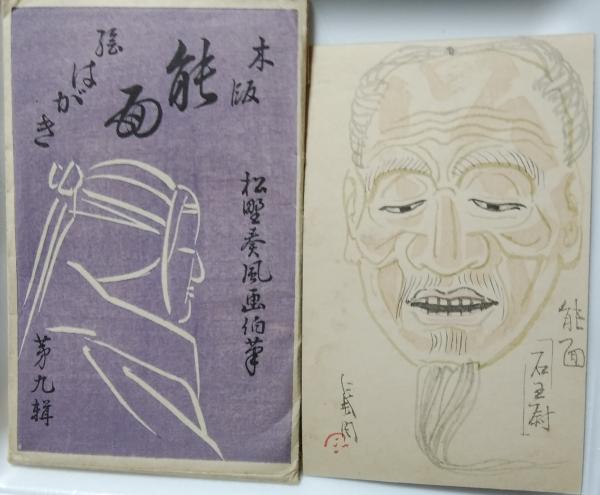 木版
能面
絵はがき
松野奏風画伯筆
第九輯
能面
「石王尉」